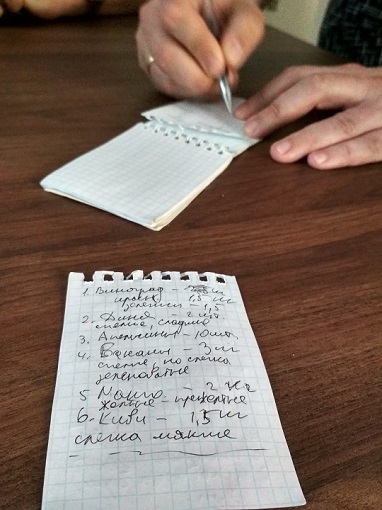 1. Виноград –
1,5 кг
зеленый – 1,5
2. Дыня – 2 шт
спелые, сладкие
3. Апельсины – 10 шт.
4. Бананы – 3 кг
спелые, но слегка
зеленоватые
5 Манго – 2 кг
желтые –
6. Киви – 1,5 кг
слегка мягкие